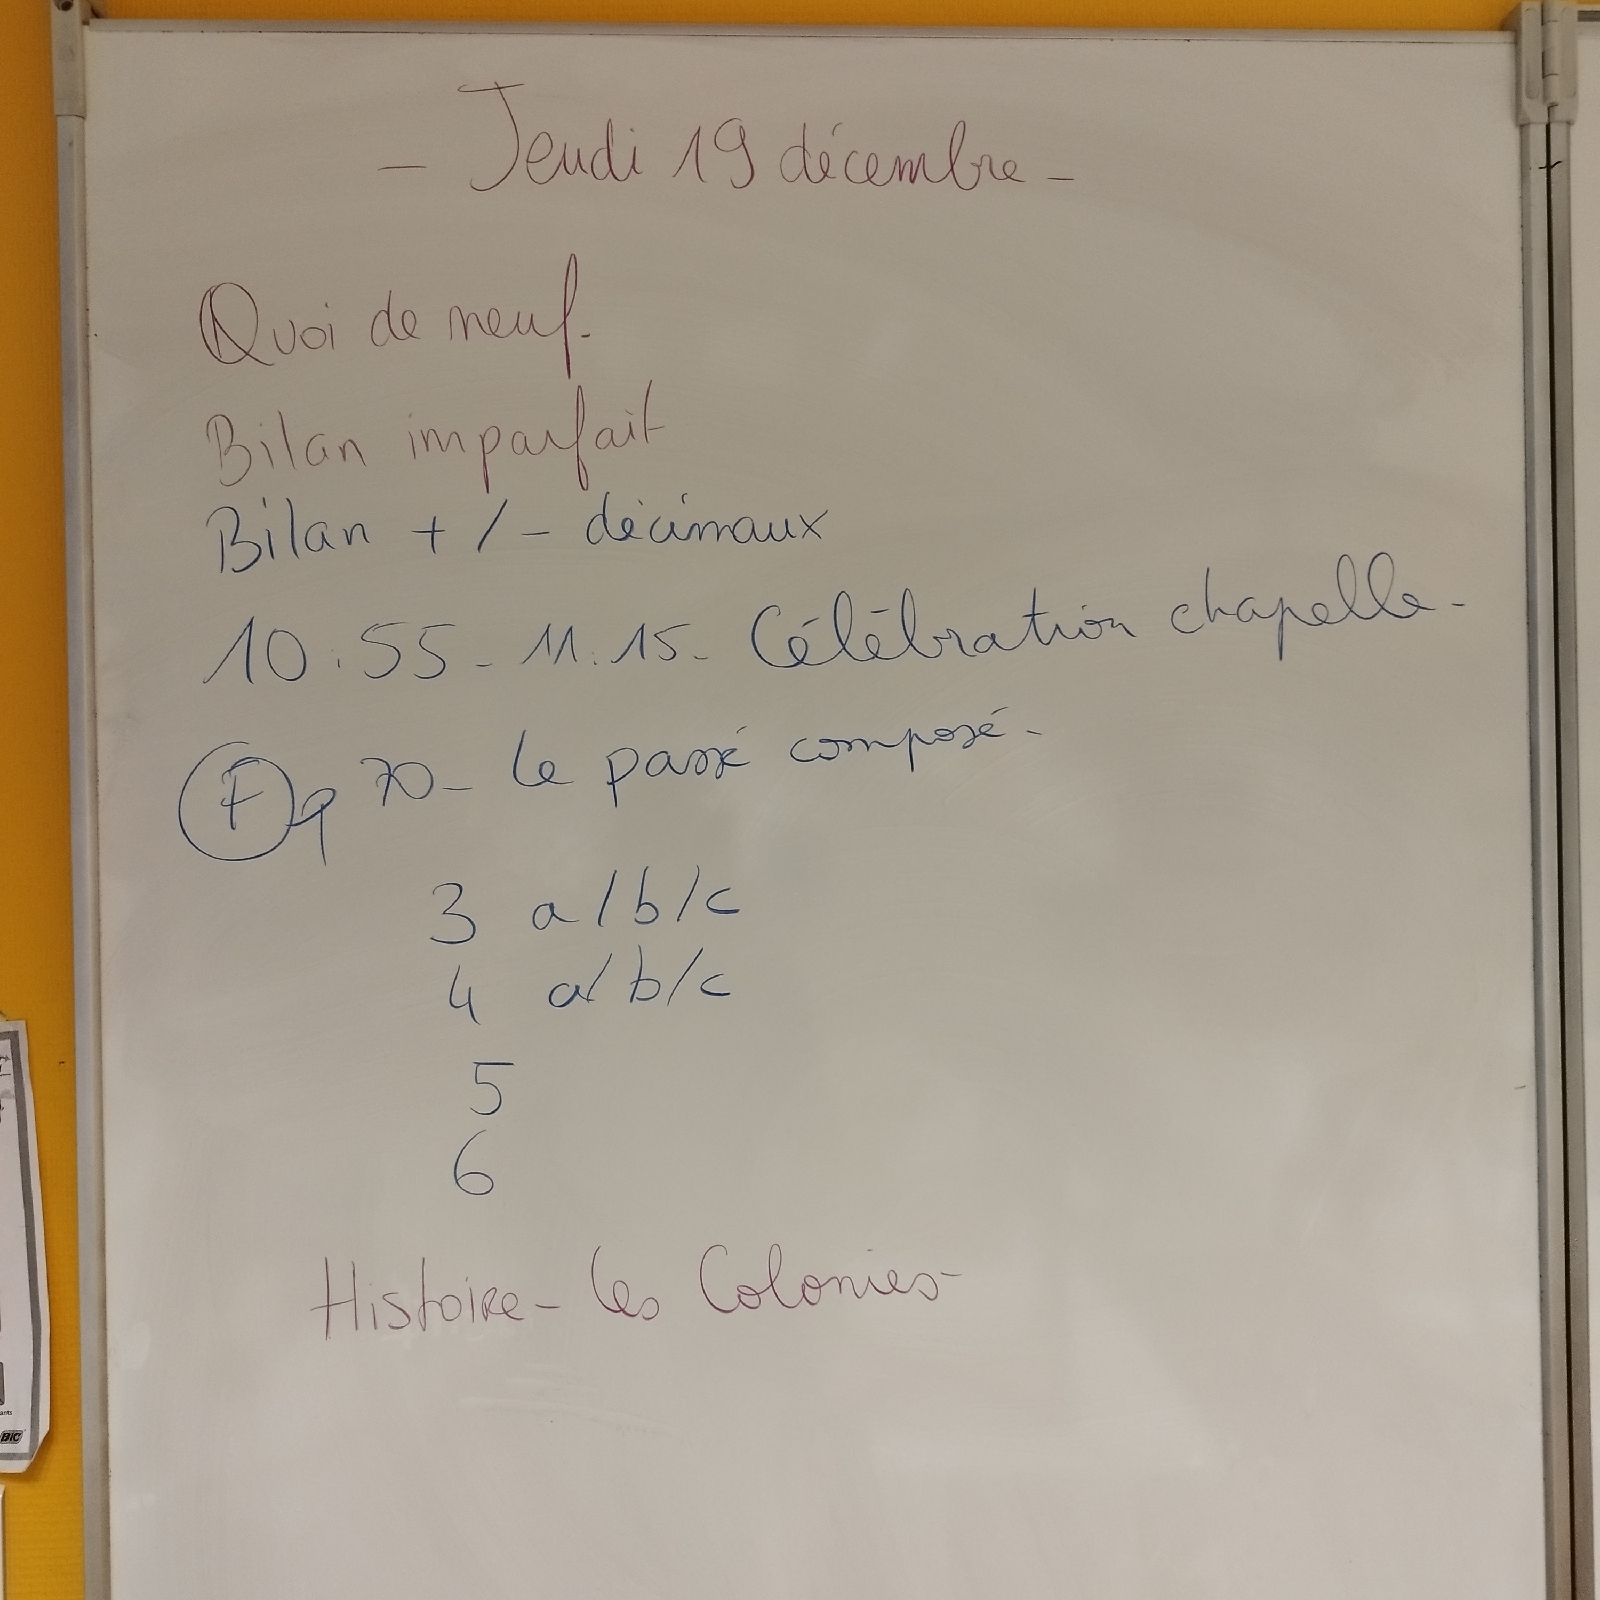 - Jeudi 19 décembre -
Quoi de neuf.
Bilan imparfait
Bilan + / - décimaux
10.55 - 11.15 - Célébration chapelle -
F p 70 - Le passé composé -
3 a/b/c
4 a/b/c
5
6
Histoire - Les Colonies -
BIC